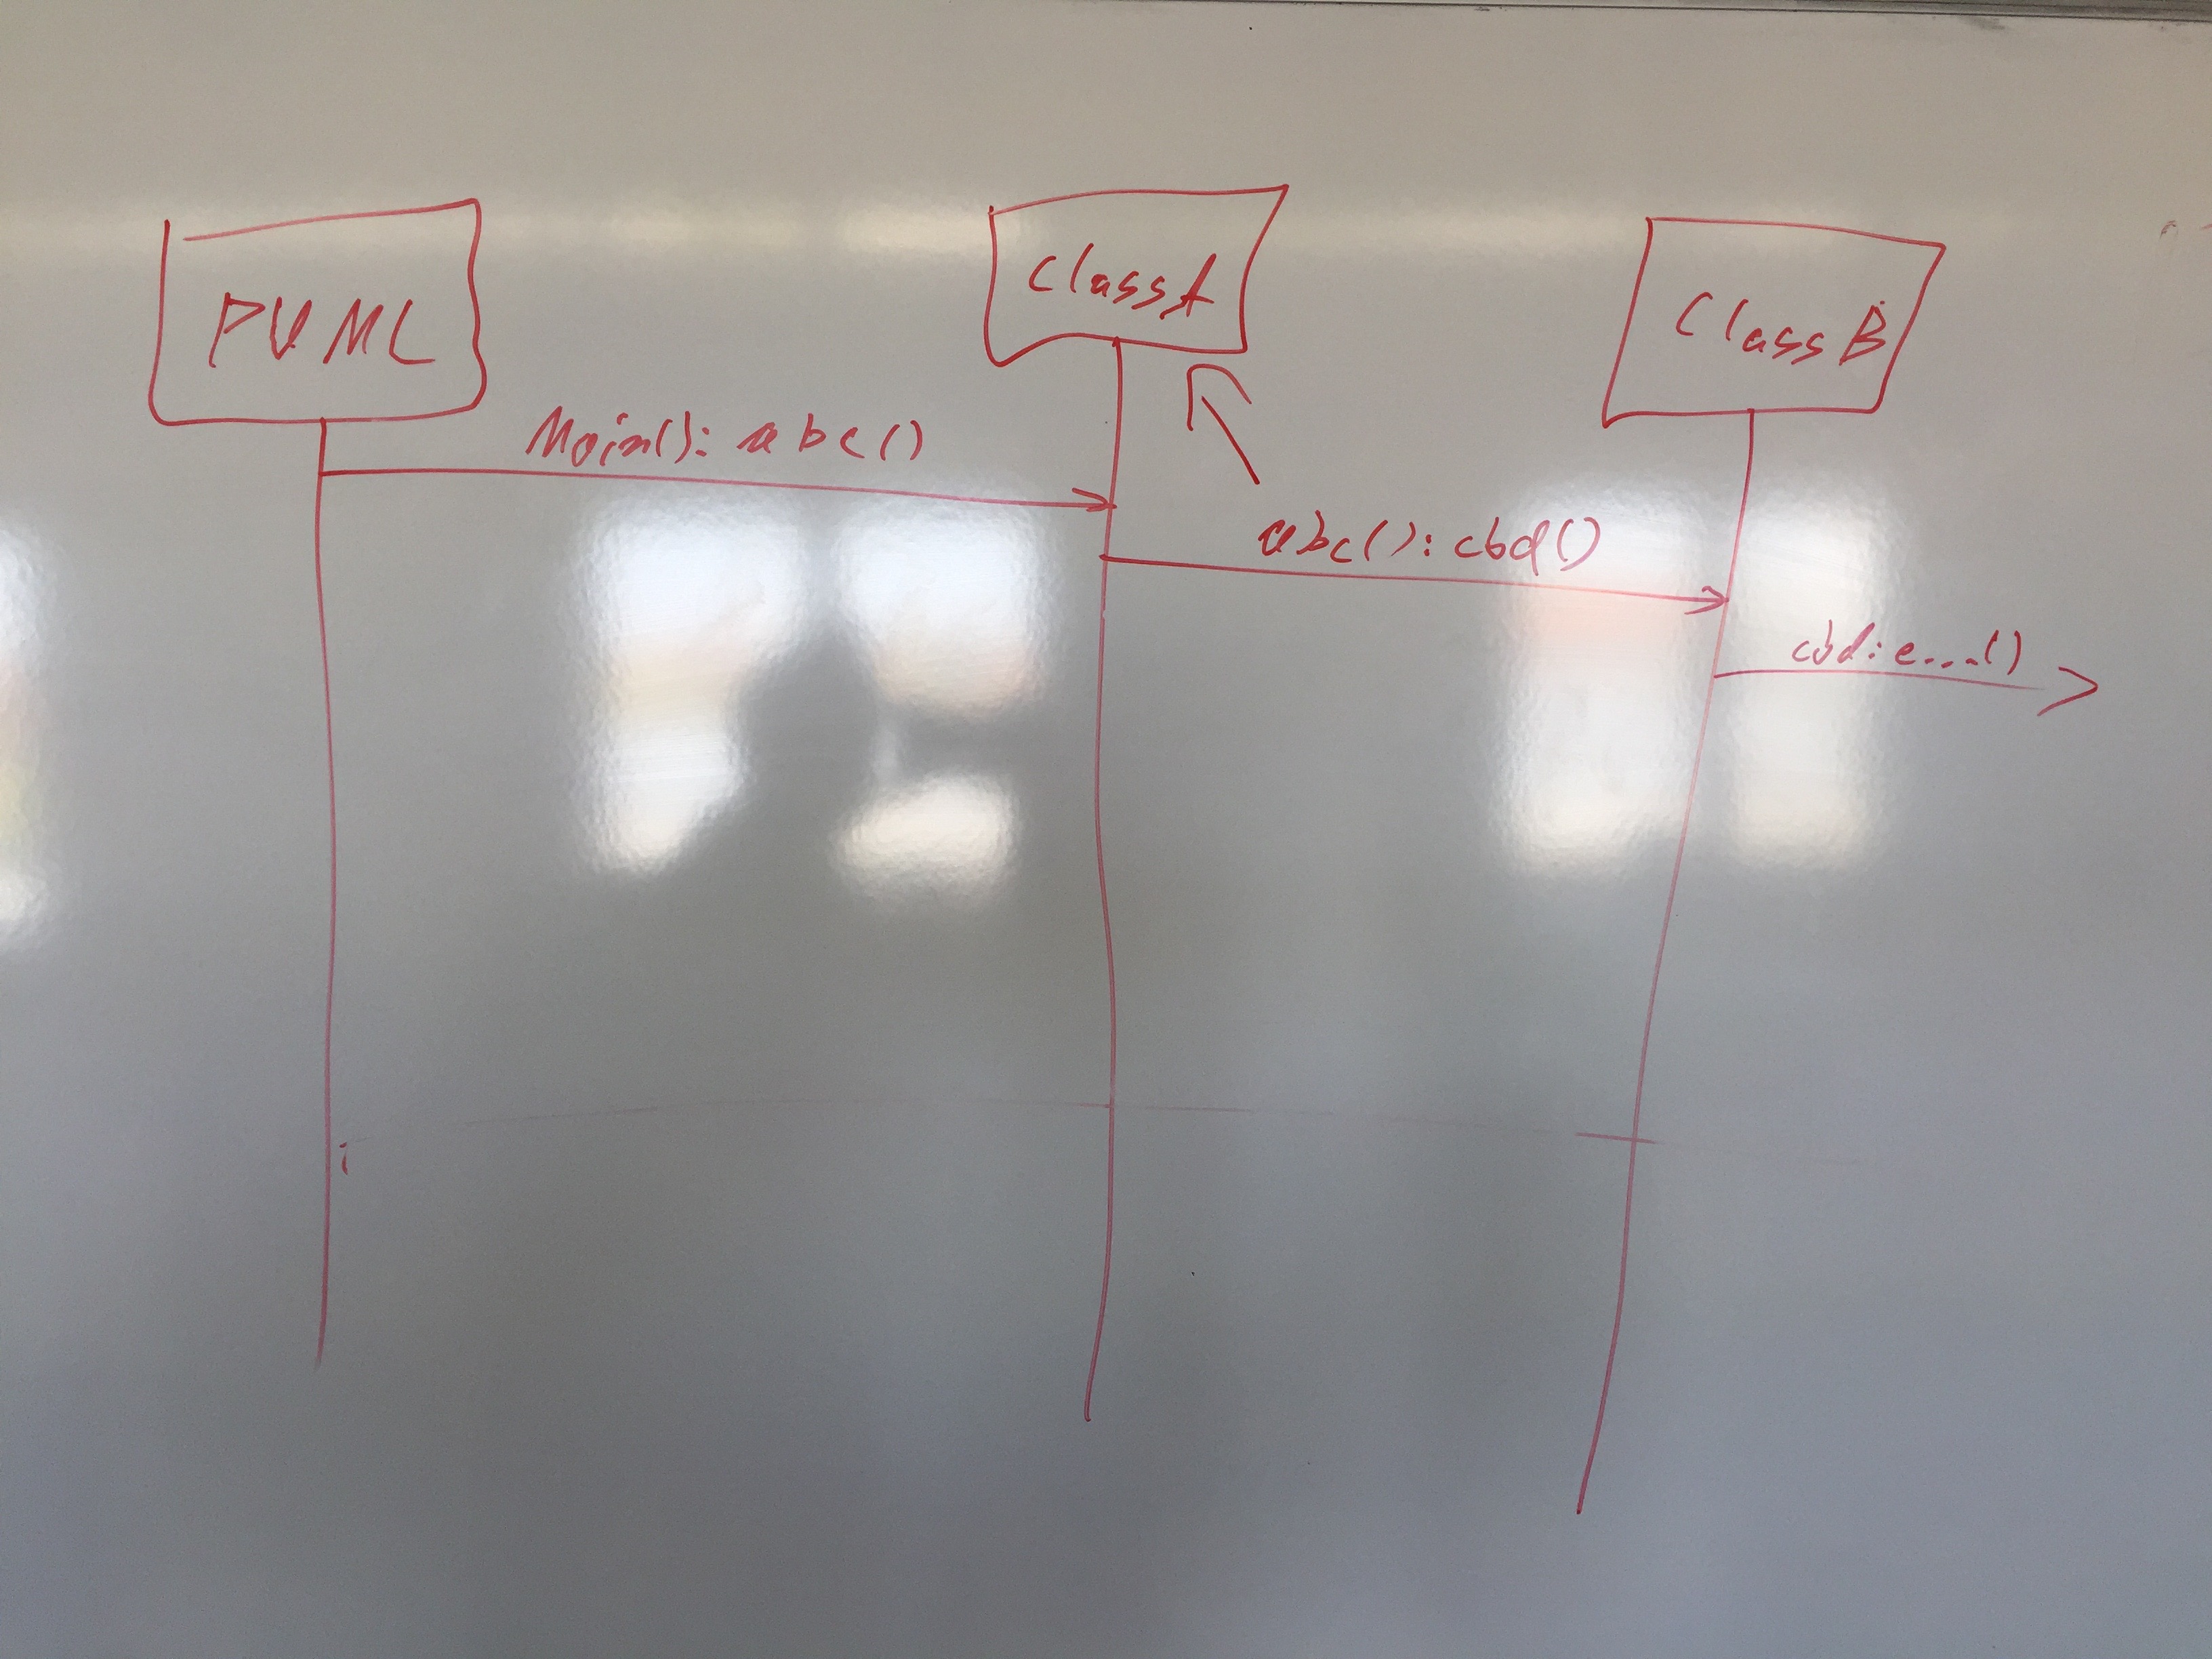 PUML
ClassA
ClassB
Main(): abc()
abc(): cbd()
cbd: e...()